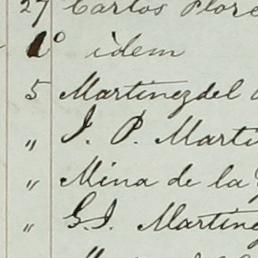 27 Carlos Flore
1º idem
5 Martinez del
„ J. P. Marti
„ Mina de la
„ G. I. Martine